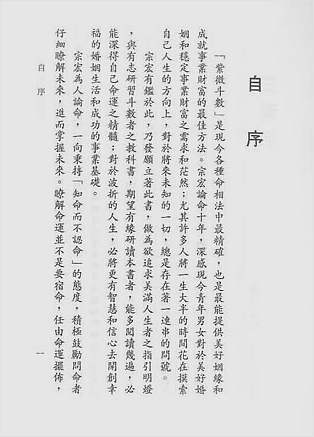 自序
「紫微斗數」是現今各種命相法中最精確，也是最能提供美好姻緣和
成就事業財富的最佳方法。宗宏論命十年，深感現今青年男女對於美好婚
姻和穩定事業財富之需求和茫然；尤其許多人將一生大半的時間花在摸索
自己人生的方向上，對於將來未知的一切，總是存在著一連串的問號。
宗宏有鑑於此，乃發願立著此書，做為欲追求美滿人生者之指引明燈
，與有志研習斗數者之教科書，期望有緣研讀本書者，能多閱讀幾遍，必
能深得自己命運之精髓；對於波折的人生，必將更有智慧和信心去開創幸
福的婚姻生活和成功的事業基礎。
宗宏為人論命，一向秉持「知命而不認命」的態度，積極鼓勵問命者
仔細瞭解未來，進而掌握未來。瞭解命運並不是要宿命，任由命運擺佈，
自序
一